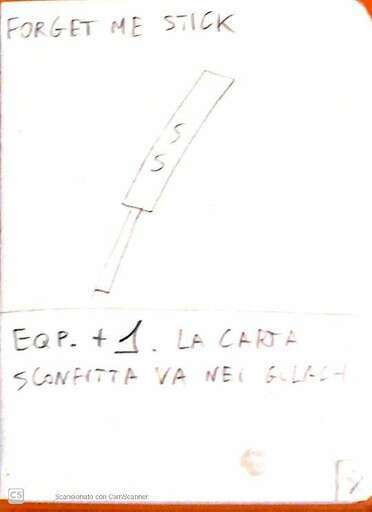 FORGET ME STICK
S
S
EQP. + 1. LA CARTA
SCONFITTA VA NEI GULAGH
CS Scansionato con CamScanner